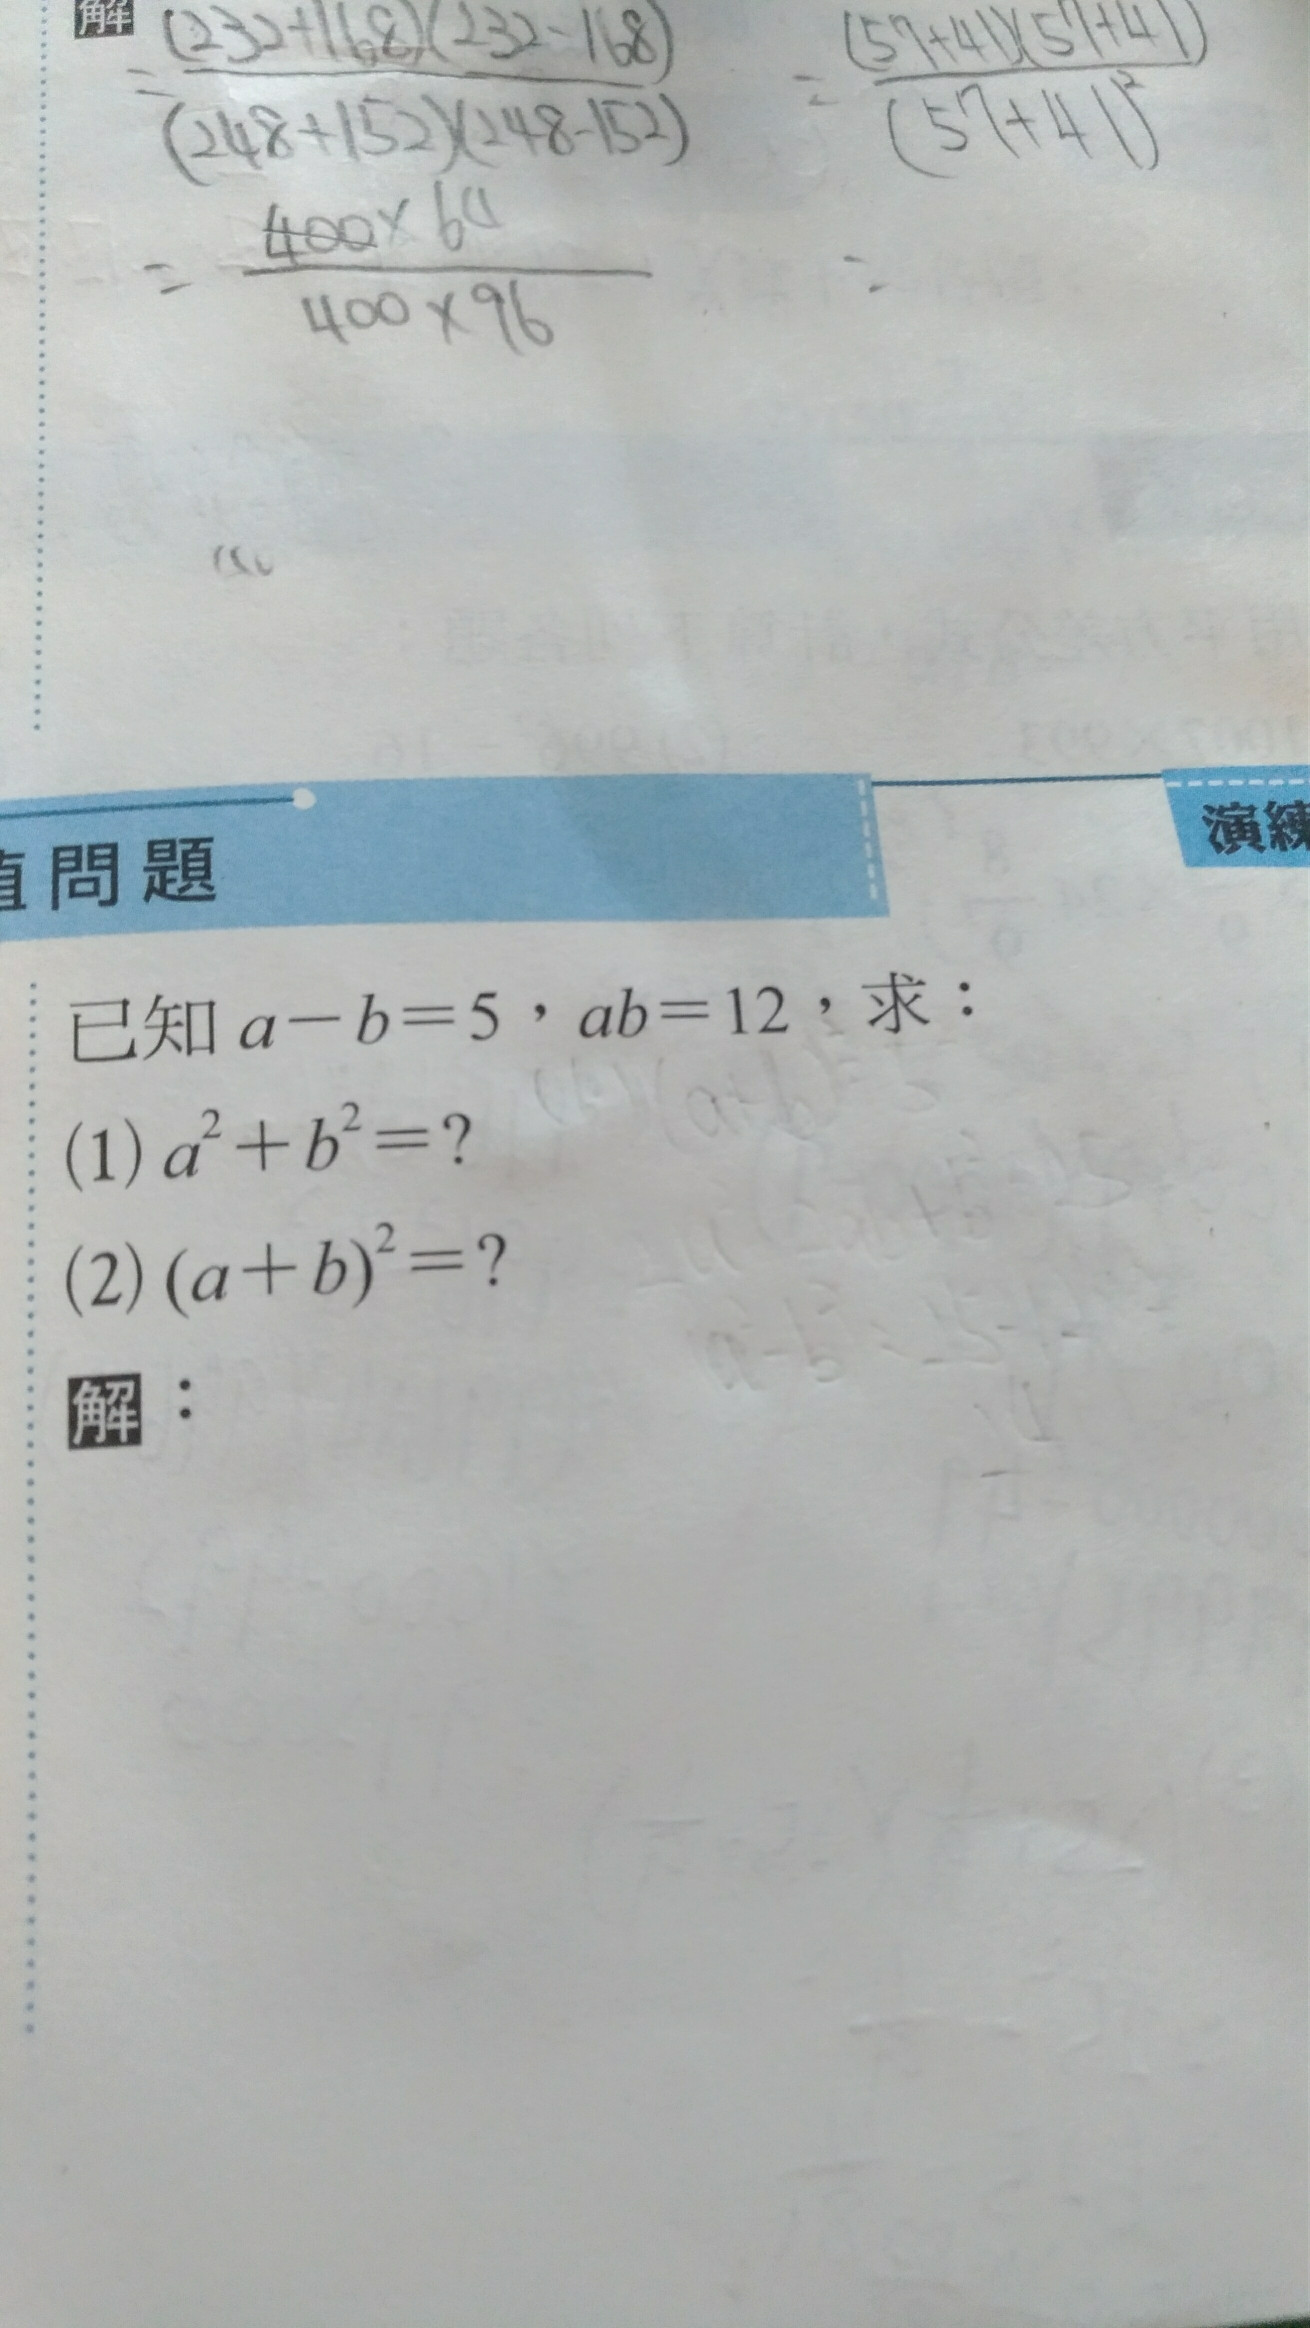 解 (232+168)(232-168) (57+41)(57+41)
= =
(248+152)(248-152) (57+41)²
400×64
= =
400×96
問題
演練
已知 a－b＝5，ab＝12，求：
(1) a²＋b²＝?
(2) (a＋b)²＝?
解：